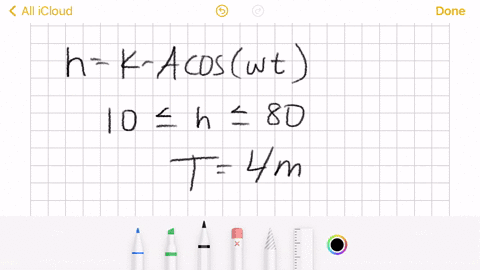 All iCloud
Done
h = K - A cos(wt)
10 ≤ h ≤ 80
T = 4m